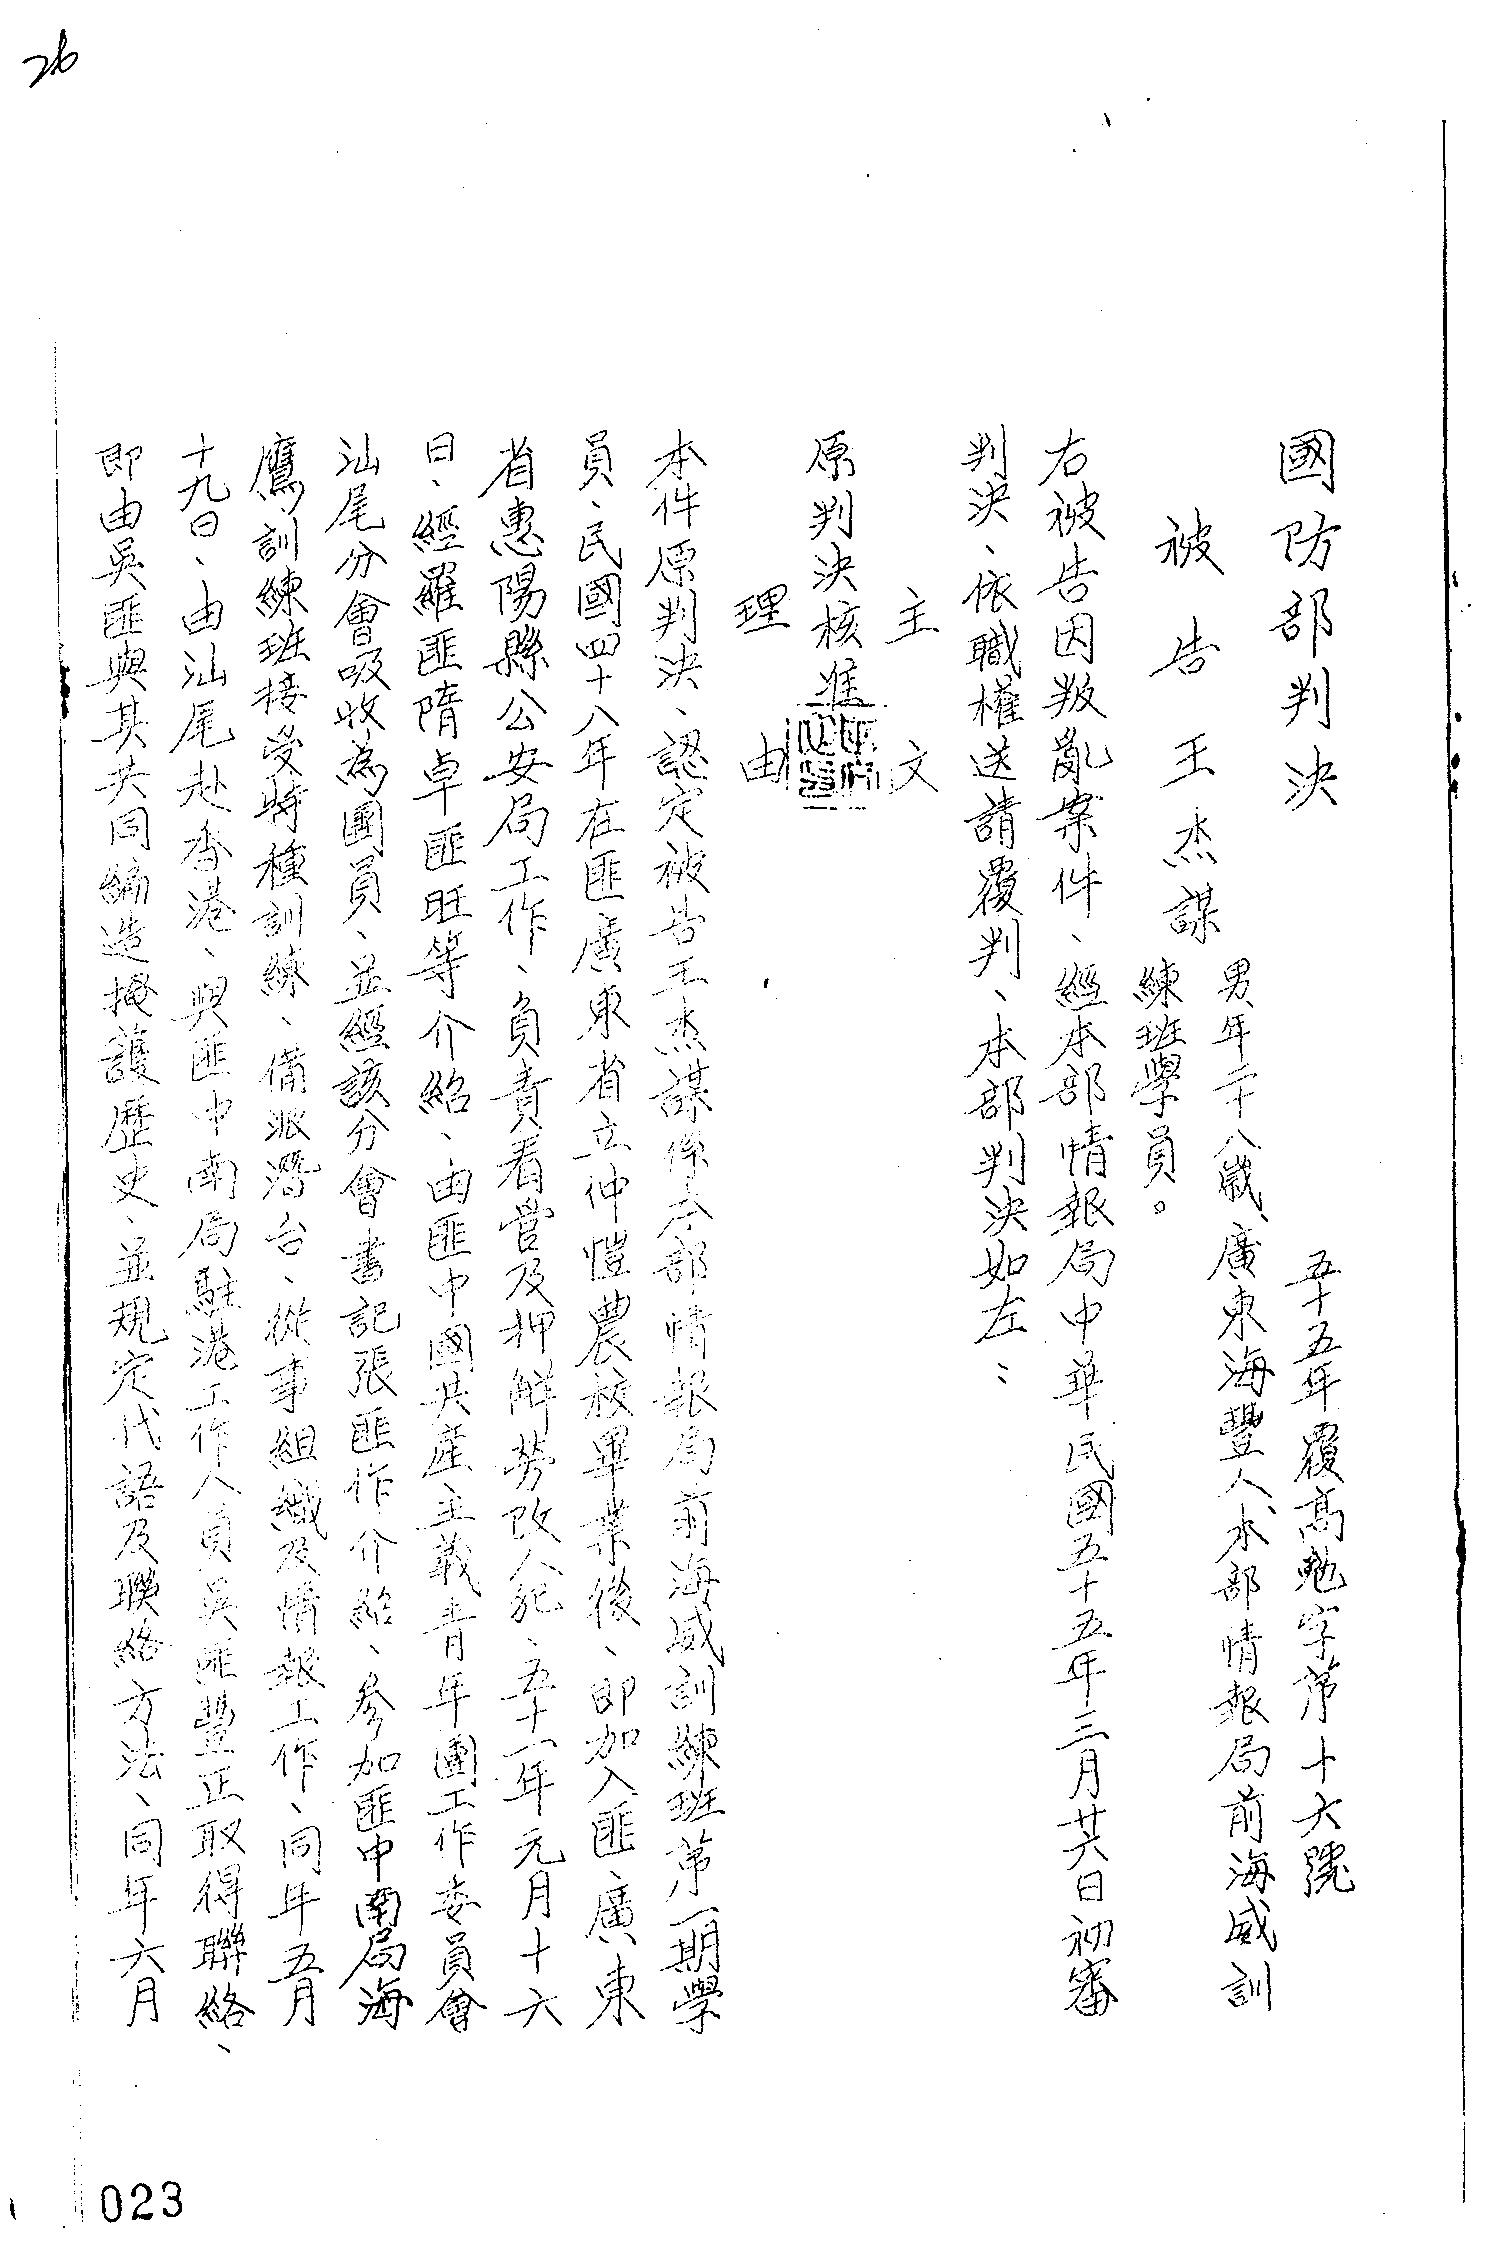 26
國防部判決
五十五年覆高勉字第十六號
被告王杰謀
男、年二十八歲、廣東海豐人、本部情報局前海威訓
練班學員。
右被告因叛亂案件、經本部情報局中華民國五十五年三月廿六日初審
判決、依職權送請覆判、本部判決如左：
主文
原判決核准
理由
本件原判決、認定被告王杰謀係本部情報局前海威訓練班第一期學
員、民國四十八年在匪廣東省立仲愷農校畢業後、即加入匪廣東
省惠陽縣公安局工作、負責看営及押解勞改人犯、五十一年元月十六
日、經羅匪隋卓匪旺等介紹、由匪中國共產主義青年團工作委員會
汕尾分會吸收為團員、並經該分會書記張匪作介紹、參加匪中南局海
鷹訓練班接受特種訓練、備派潛台、從事組織及情報工作、同年五月
十九日、由汕尾赴香港、與匪中南局駐港工作人員吳匪豐正取得聯絡、
即由吳匪與其共同編造掩護歷史、並規定代語及聯絡方法、同年六月
023